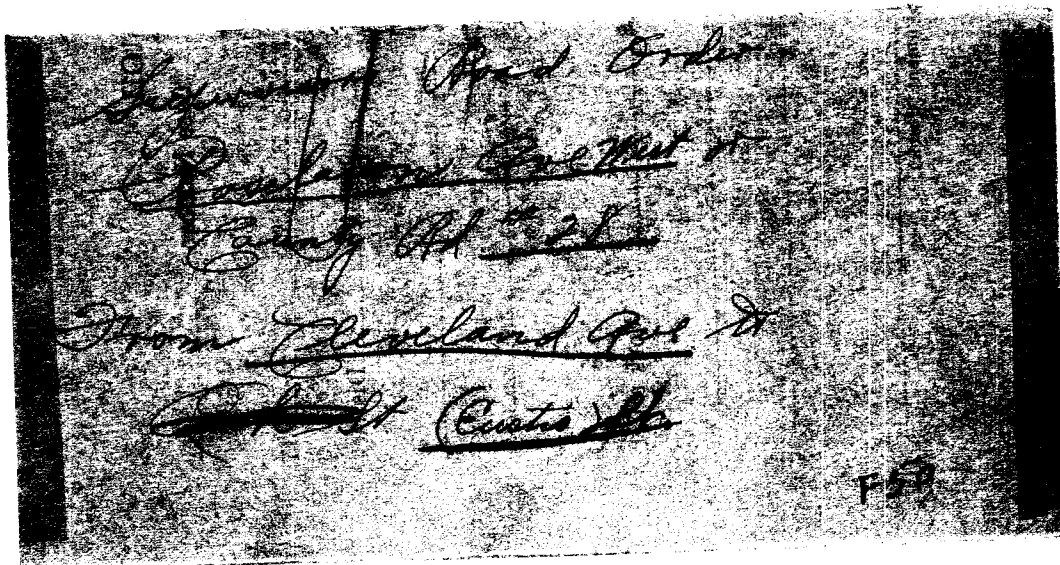 Supervisors Road Order
Roselawn Ave West or
County Rd # 28
From Cleveland Ave to
St (Curtis) St.
F5P